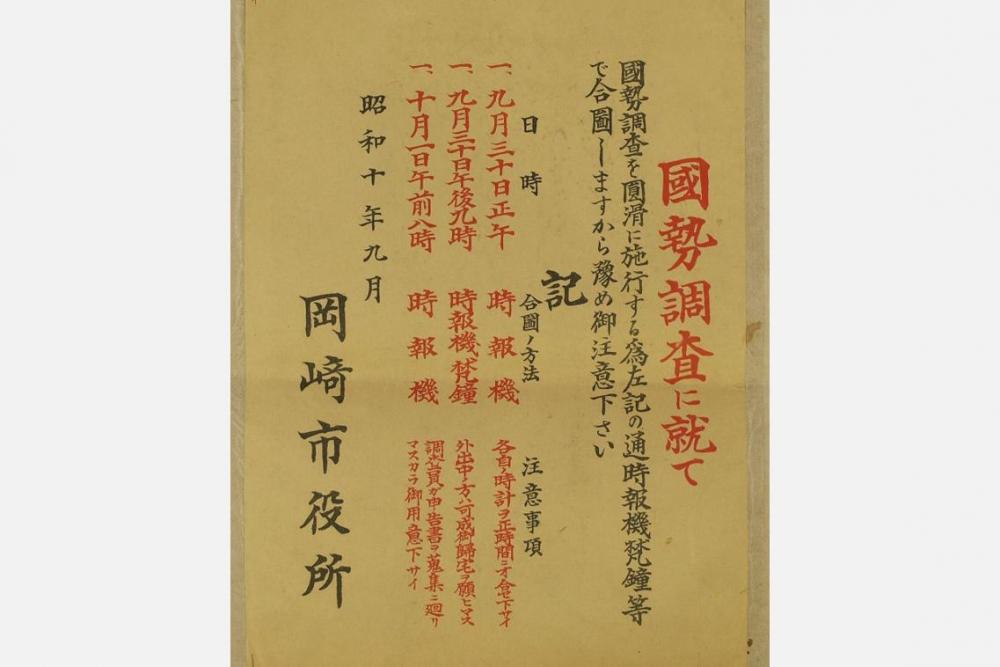 國勢調査に就て
國勢調査を圓滑に施行する爲左記の通時報機梵鐘等
で合圖しますから豫め御注意下さい
記
日時　合圖ノ方法　注意事項
一、九月三十日正午　時報機　各自ノ時計ヲ正時間ニオ合セ下サイ
一、九月三十日午後九時　時報機梵鐘　外出中ノ方ハ可成御歸宅ヲ願ヒマス
一、十月一日午前八時　時報機　調査員ガ申告書ヲ蒐集ニ廻リ
マスカラ御用意下サイ
昭和十年九月
岡崎市役所